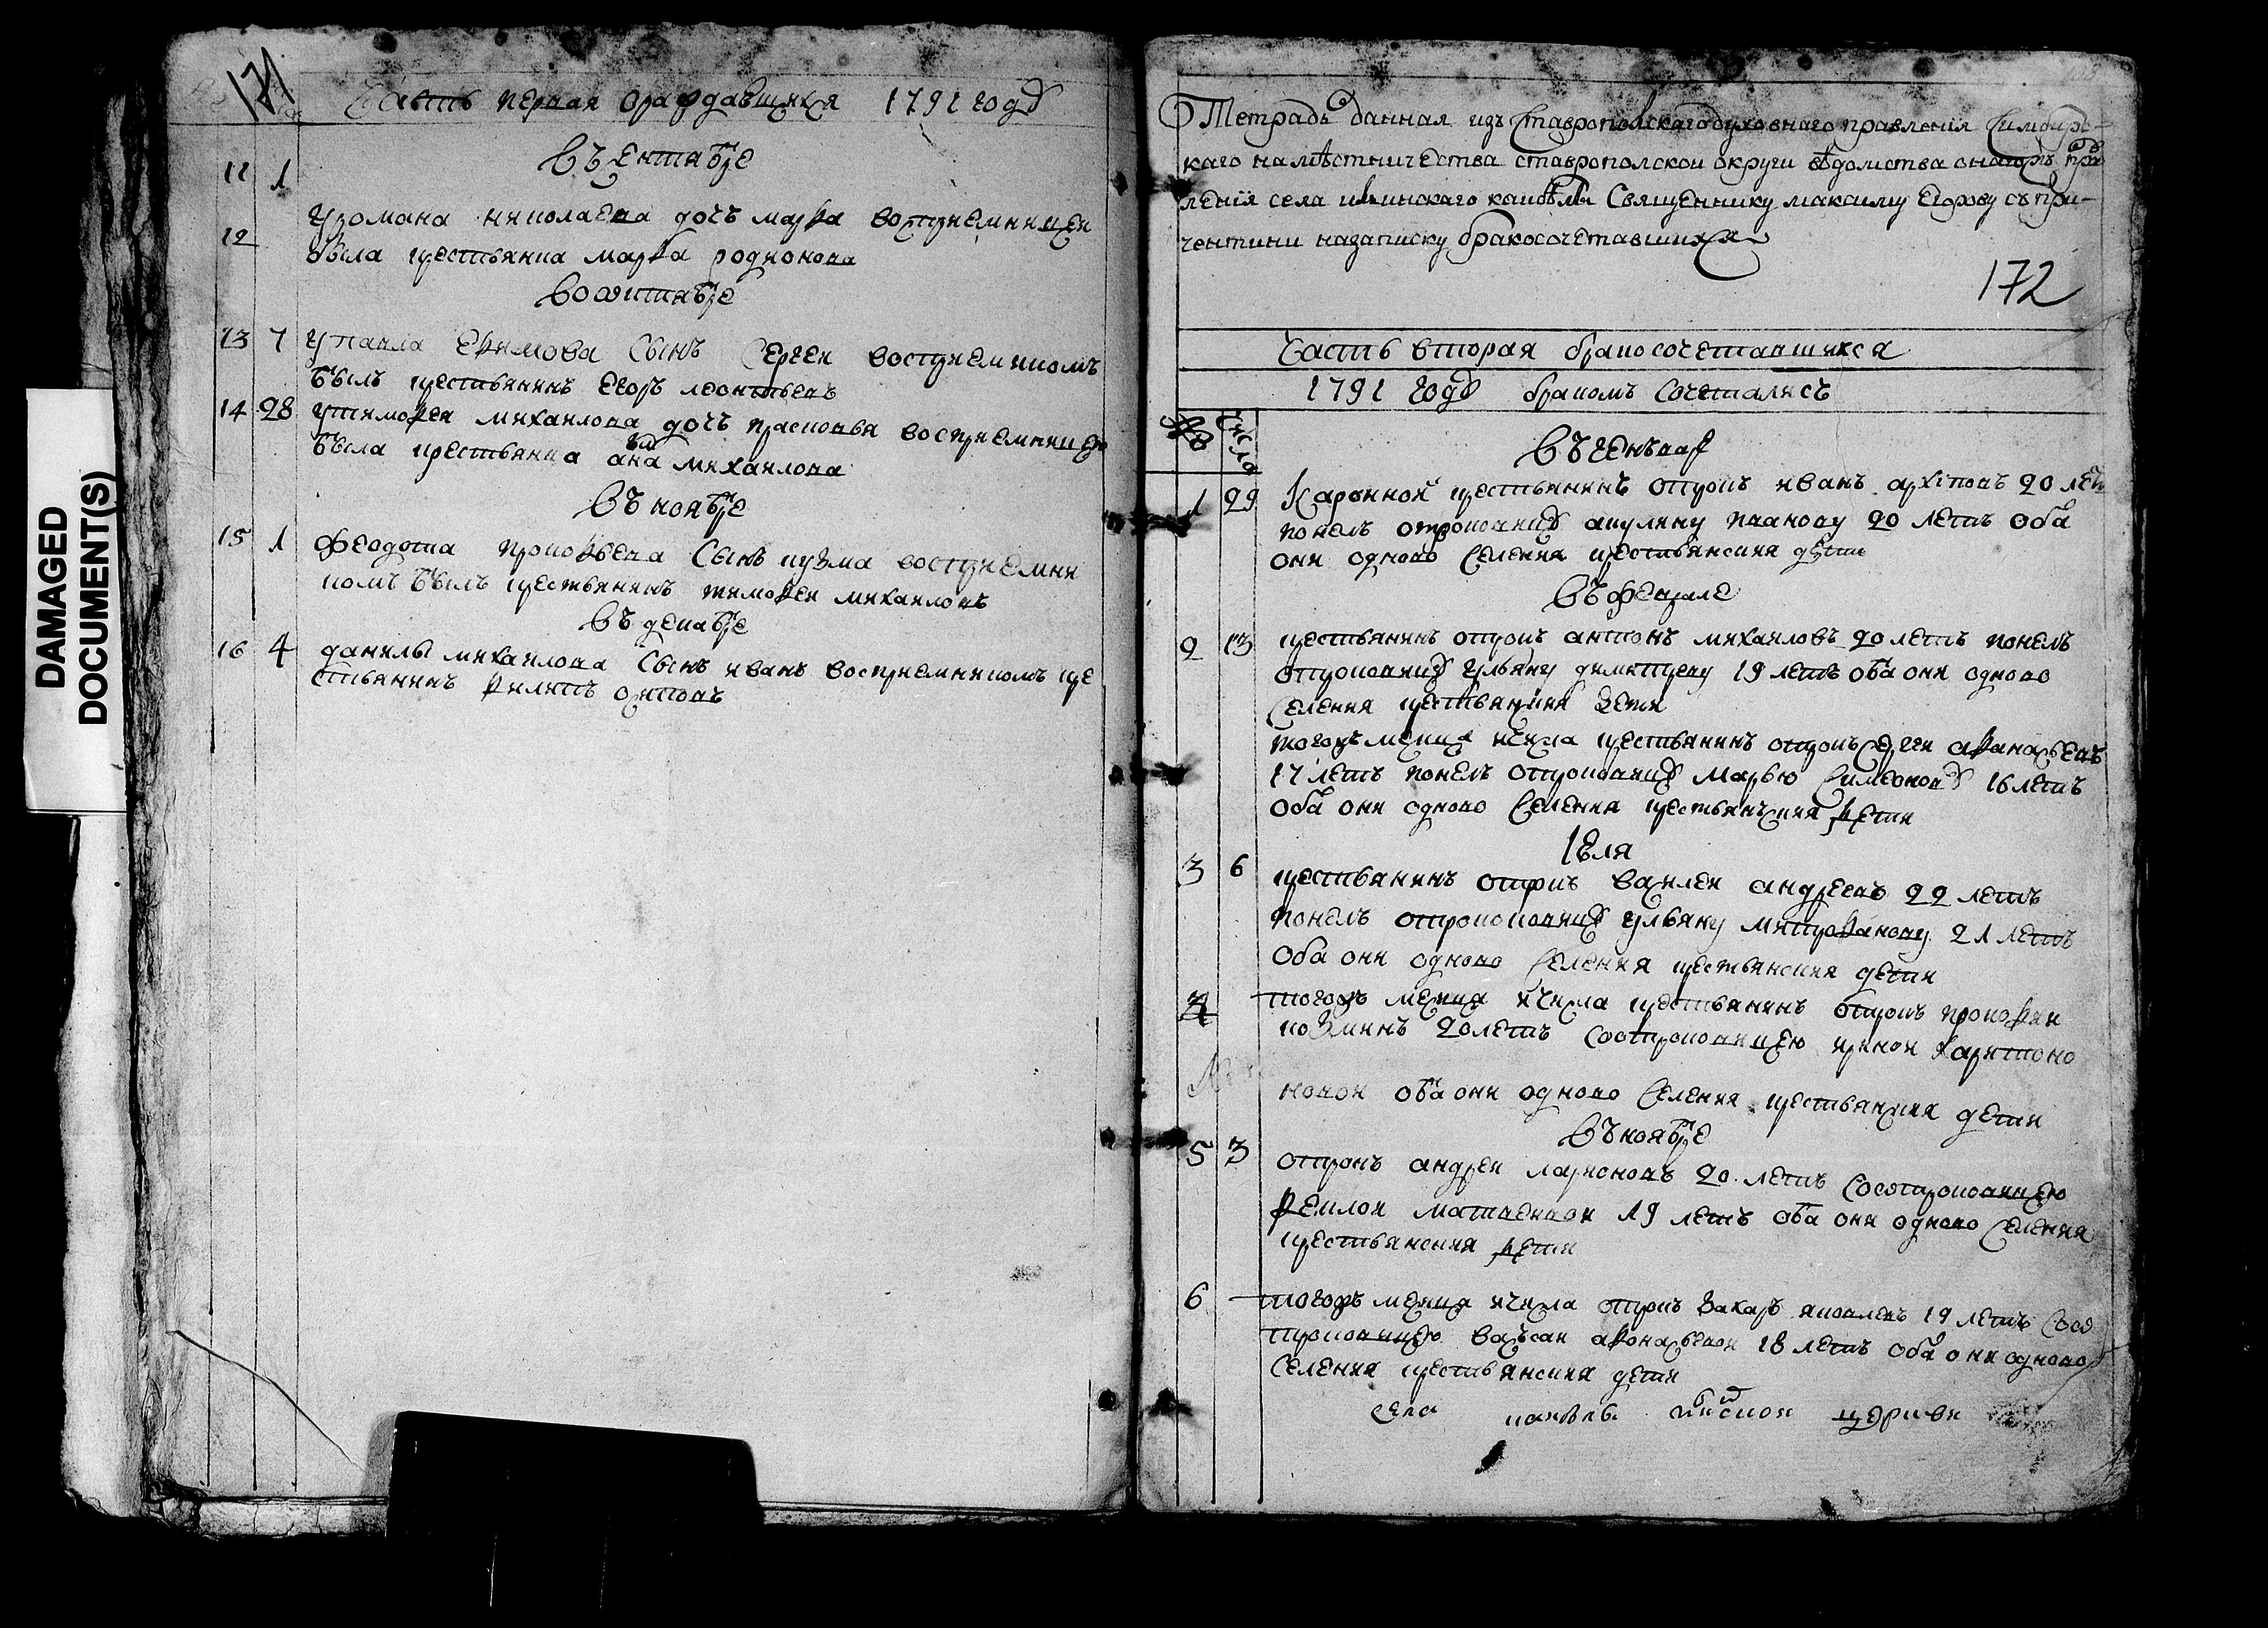 171
Часть первая ораждавшихся 1791 году
въ сентябре
11 1
У романа николаева дочъ марфа восприемницеи
12
была крестьянка марфа родионова
во октябре
13 7 У павла ефимова сынъ сергеи восприемникомъ
былъ крестьянинъ егоръ леонтьевъ
14 28 У тимофея михаилова дочъ прасковья восприемницею
была крестьянка анна михаилова
въ ноябре
15 1 феодота прокофьева сынъ кузма восприемни
комъ былъ крестьянинъ тимофеи михаиловъ
въ декабре
16 4 данилы михаилова сынъ иванъ восприемникомъ кре
стьянинъ филипъ осиповъ
DAMAGED
DOCUMENT(S)
Тетрадь данная изъ Ставропольскаго духовнаго правления Симбирс-
каго наместничества ставрополскои округи ведомства онагожъ пра
вления села священнику максиму Егорову съ при-
чентини назаписку бракосочетавшихся
172
Часть вторая бракосочетавшихся
1791 году бракомъ сочетались
№ Числа
въ генъваре
1 29 крестьянинъ отрокъ иванъ архиповъ 20 летъ
понелъ отроковицу акулину иванову 20 летъ оба
они одново селения крестьянския дети
въ феврале
2 13 крестьянинъ отрокъ антонъ михаиловъ 20 летъ понелъ
отроковицу ульяну димитреву 19 летъ оба они одново
селения крестьянския дети
тогожъ месяца ичисла крестьянинъ отрокъ сергеи афанасьевъ
17 летъ понелъ отроковицу марью симеонову 16 летъ
оба они одново селения крестьянския дети
Iюля
3 6 крестьянинъ отрокъ василеи андреевъ 22 летъ
понелъ отроковицу ульяну митрофанову 21 летъ
оба они одново селения крестьянския дети
4 тогожъ месяца ичисла крестьянинъ отрокъ прокофеи
козминъ 20 летъ соотроковицею ириной харитоно
новои оба они одново селения крестьянския дети
въ ноябре
5 3 отрокъ андреи ларионовъ 20 летъ соотроковицею
феклои матвеевои 19 летъ оба они одново селения
крестьянския дети
6 тогожъ месяца ичисла отрокъ захаръ яковлевъ 19 летъ соо
троковицею афонасьевои 18 летъ оба они одново
селения крестьянския дети
села церкви